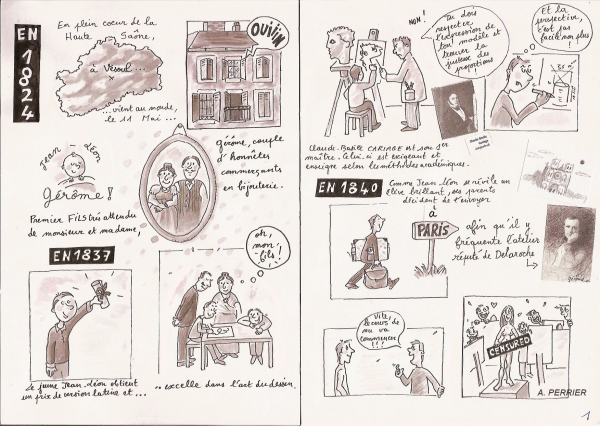 EN 1824
En plein coeur de la
Haute Saône,
à Vesoul...
OUIIIN
...vient au monde,
le 11 Mai...
Jean Léon
Gérôme!
Premier FILS très attendu
de monsieur et madame
Gérôme, couple
d'honnêtes
commerçants
en bijouterie.
EN 1837
Le jeune Jean-Léon obtient
un prix de version latine et...
oh,
mon
fils!
.. excelle dans l'art du dessin.
NON!
Tu dois
respecter
l'expression de
ton modèle et
trouver la
justesse des
proportions!
Et la
perspective,
c'est pas
facile non plus!
Claude-Basile CARIAGE est son 1er
maître. Celui-ci est exigeant et
enseigne selon les méthodes académiques.
EN 1840
Comme Jean-Léon se révèle un
élève brillant, ses parents
décident de l'envoyer
à
PARIS
afin qu'il y
fréquente l'atelier
réputé de Delaroche
Vite,
le cours de
nu va
commencer
!!!
CENSURED
A. PERRIER
1